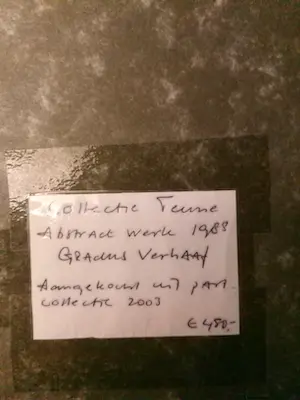 Collectie Teune
Abstract werk 1988
Gradus Verhaaf
Aangekocht uit part.
collectie 2003
€ 450,-